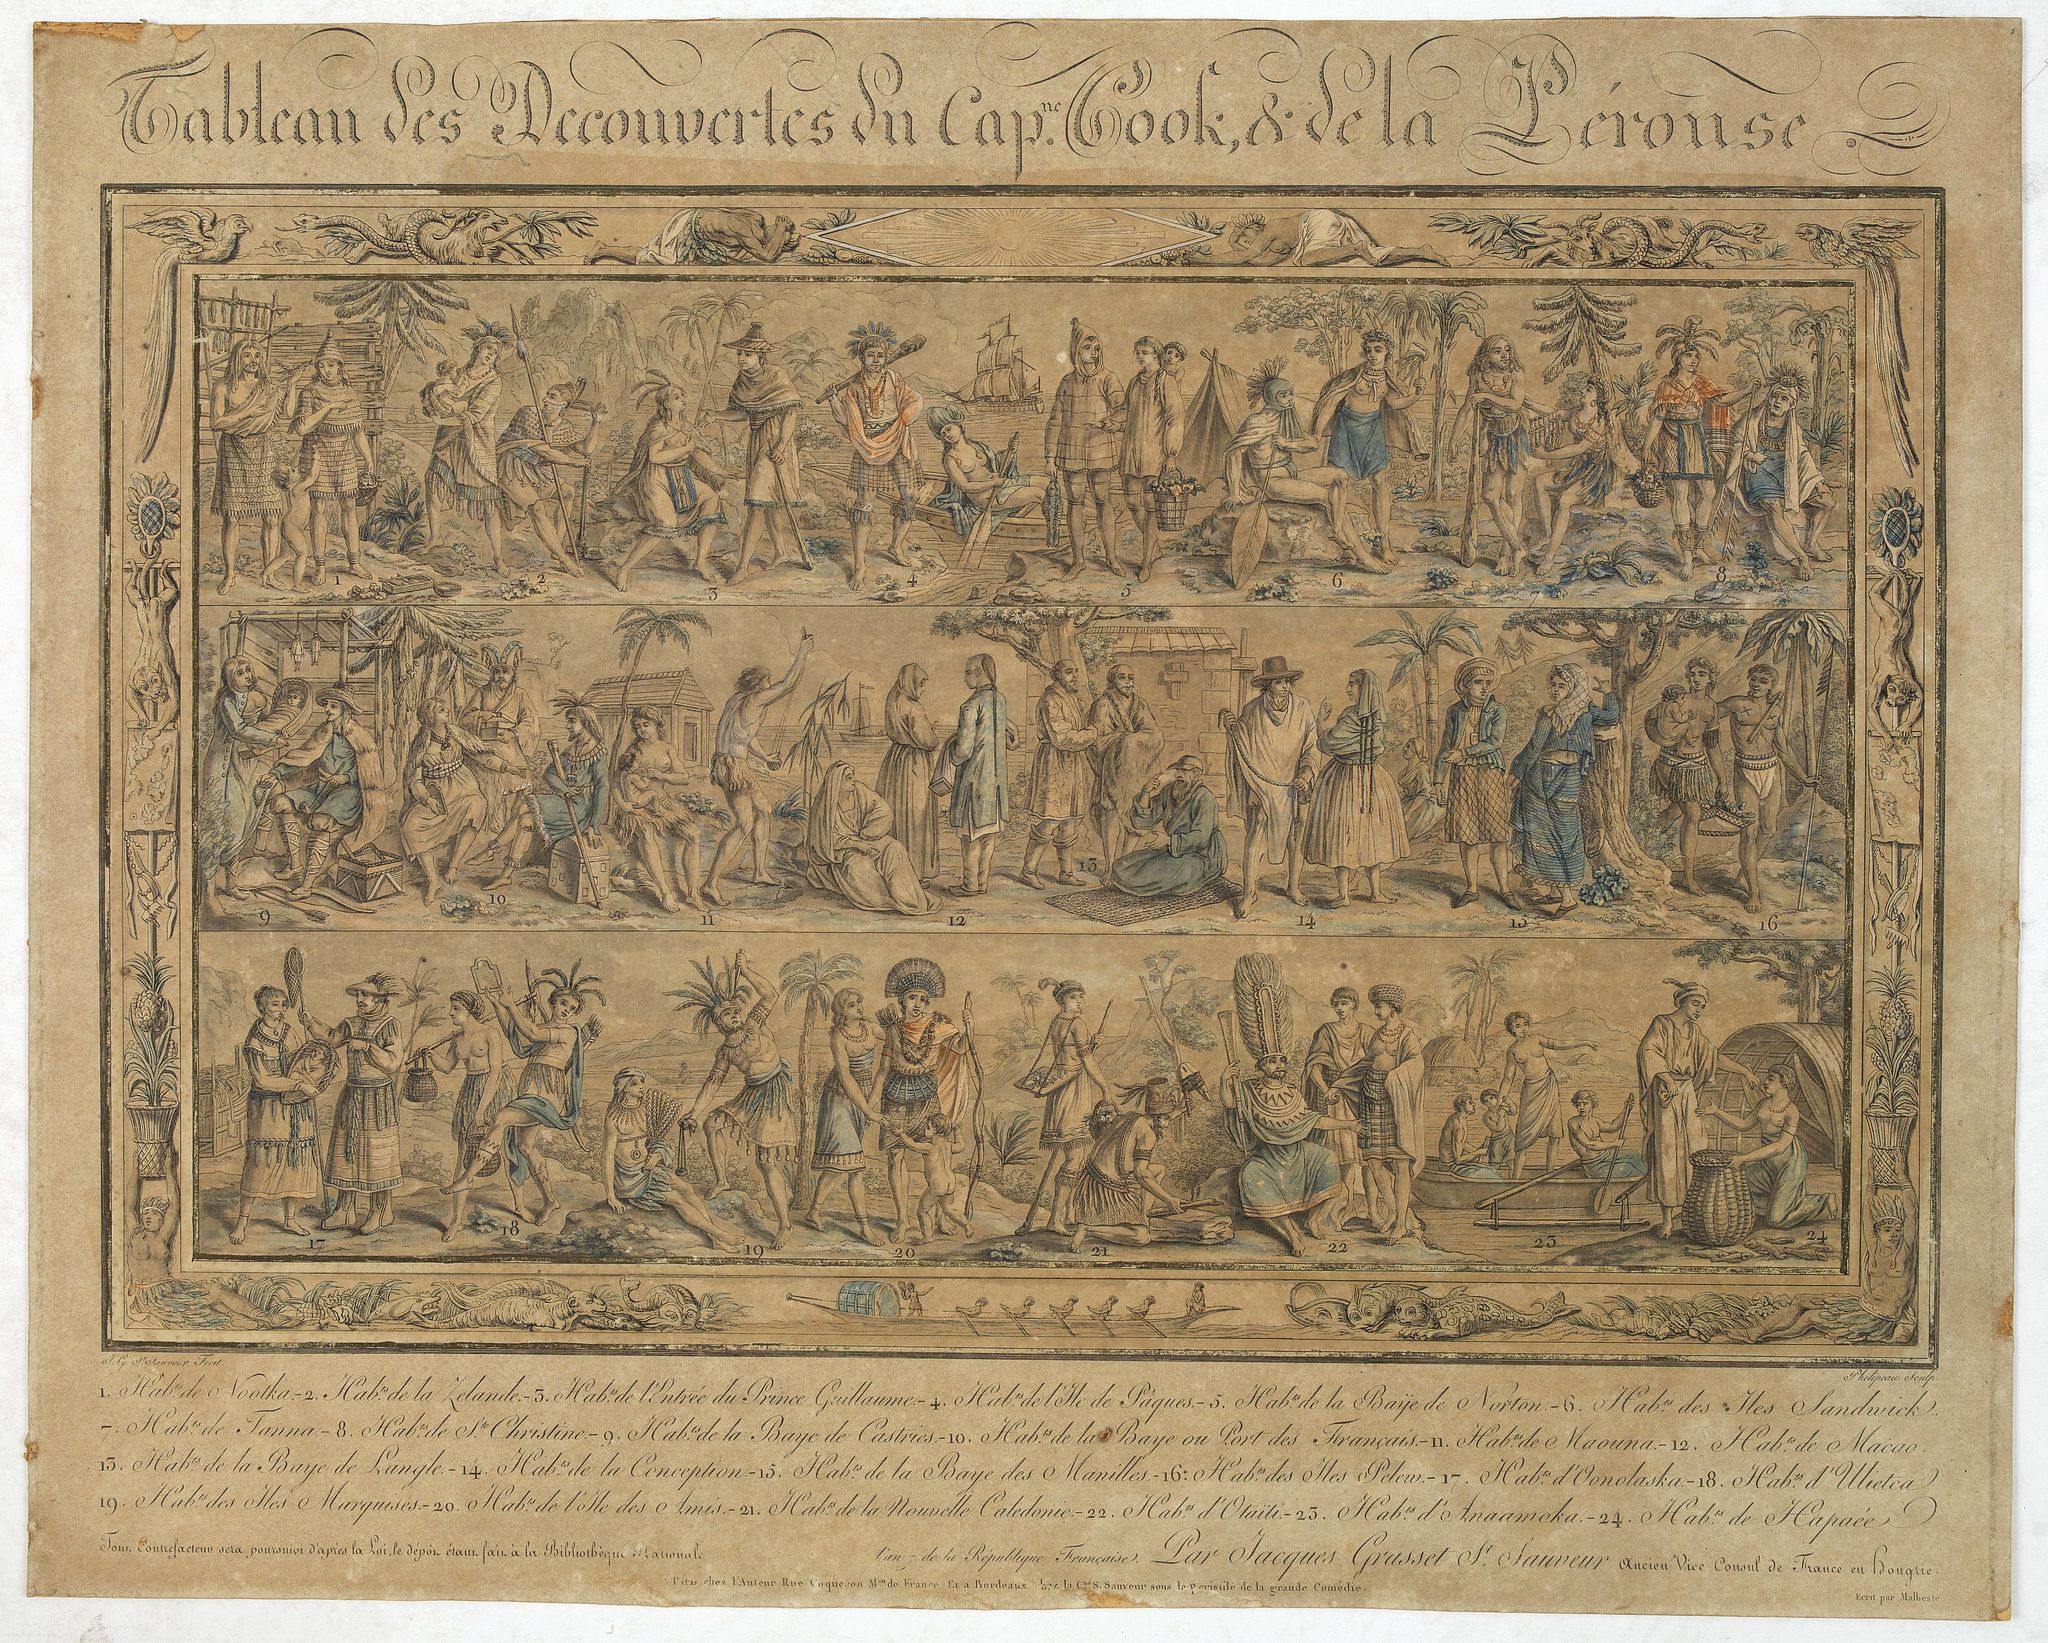 Tableau des Decouvertes du Cap.ne Cook, & de la Pérouse.
1
2
3
4
5
6
7
8
9
10
11
12
13
14
15
16
17
18
19
20
21
22
23
24
J. G. St. Sauveur Fecit.
Phelipeau Sculp.
1. Hab.ns de Nootka.-2. Hab.ns de la Zelande.-3. Hab.ns de l'Entrée du Prince Guillaume.-4. Hab.ns de l'Ile de Pâques.-5. Hab.ns de la Baÿe de Norton.-6. Hab.ns des Iles Sandwick.
7. Hab.ns de Tanna.-8. Hab.ns de Ste Christine.-9. Hab.ns de la Baye de Castries.-10. Hab.ns de la Baye ou Port des Français.-11. Hab.ns de Maouna.-12. Hab.ns de Macao.
13. Hab.ns de la Baye de Langle.-14. Hab.ns de la Conception.-15. Hab.ns de la Baye des Manilles.-16. Hab.ns des Iles Pelew.-17. Hab.ns d'Oonolaska.-18. Hab.ns d'Ulietea
19. Hab.ns des Iles Marquises.-20. Hab.ns de l'Ile des Amis.-21. Hab.ns de la Nouvelle Caledonie.-22. Hab.ns d'Otaiti.-23. Hab.ns d'Anaamoka.-24. Hab.ns de Hapaée
Tout Contrefacteur sera poursuivi d'après la Loi, le dépôt étant fait à la Bibliothèque Nationale
l'an 7 de la République Française. Par Jacques Grasset St. Sauveur Ancien Vice Consul de France en Hongrie.
A Paris chez l'Auteur Rue Coqueron M.on de France Et a Bordeaux chez la C.ne S. Sauveur sous le peristile de la grande Comédie.
Ecrit par Malbeste